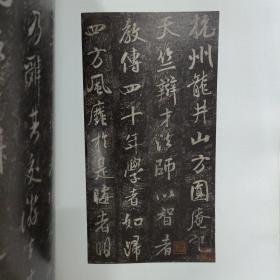 杭州龍井山方圓庵記
天竺辯才法師以智者
教傳四十年學者如歸
四方風靡於是晦者明
乃辭其交游去